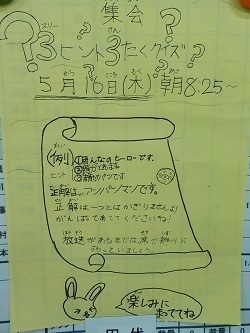 集会
スリー さん
?3ヒント3たくクイズ?
がつ にち もく あさ
5月16日(木) 朝8:25~
(例) ①みんなのヒーローです。
ヒント
③顔がパンです
正解は…アンパンマンです。
正解は一つとはかぎりませんよ!
がんばってあててくださいね!
放送があるまでは、席で静かに
まっていましょう。
楽しみに
まっててね